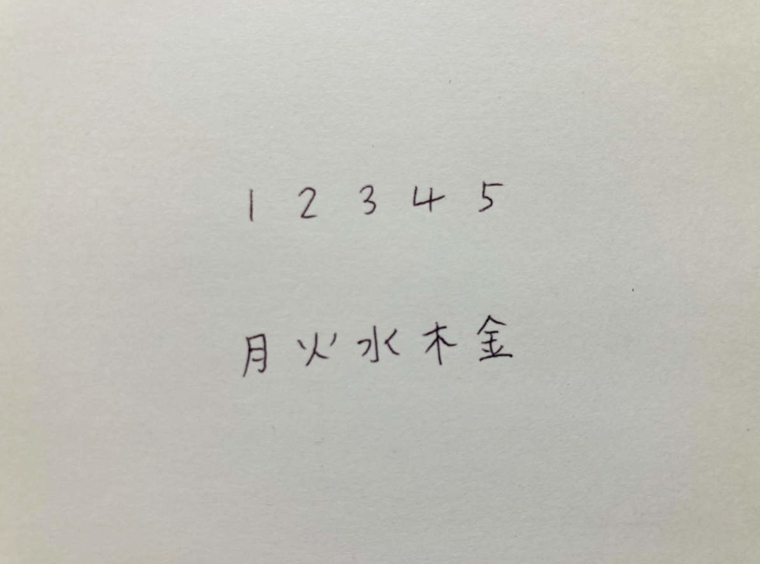 1 2 3 4 5
月火水木金